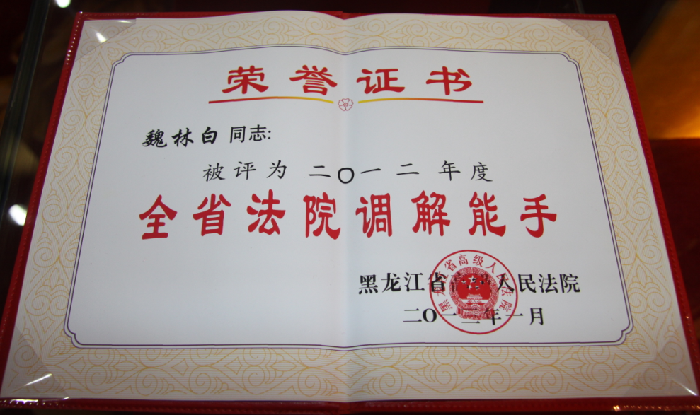 荣誉证书
魏林白同志:
被评为二〇一二年度
全省法院调解能手
黑龙江省高级人民法院
二〇一三年一月
黑龙江省高级人民法院